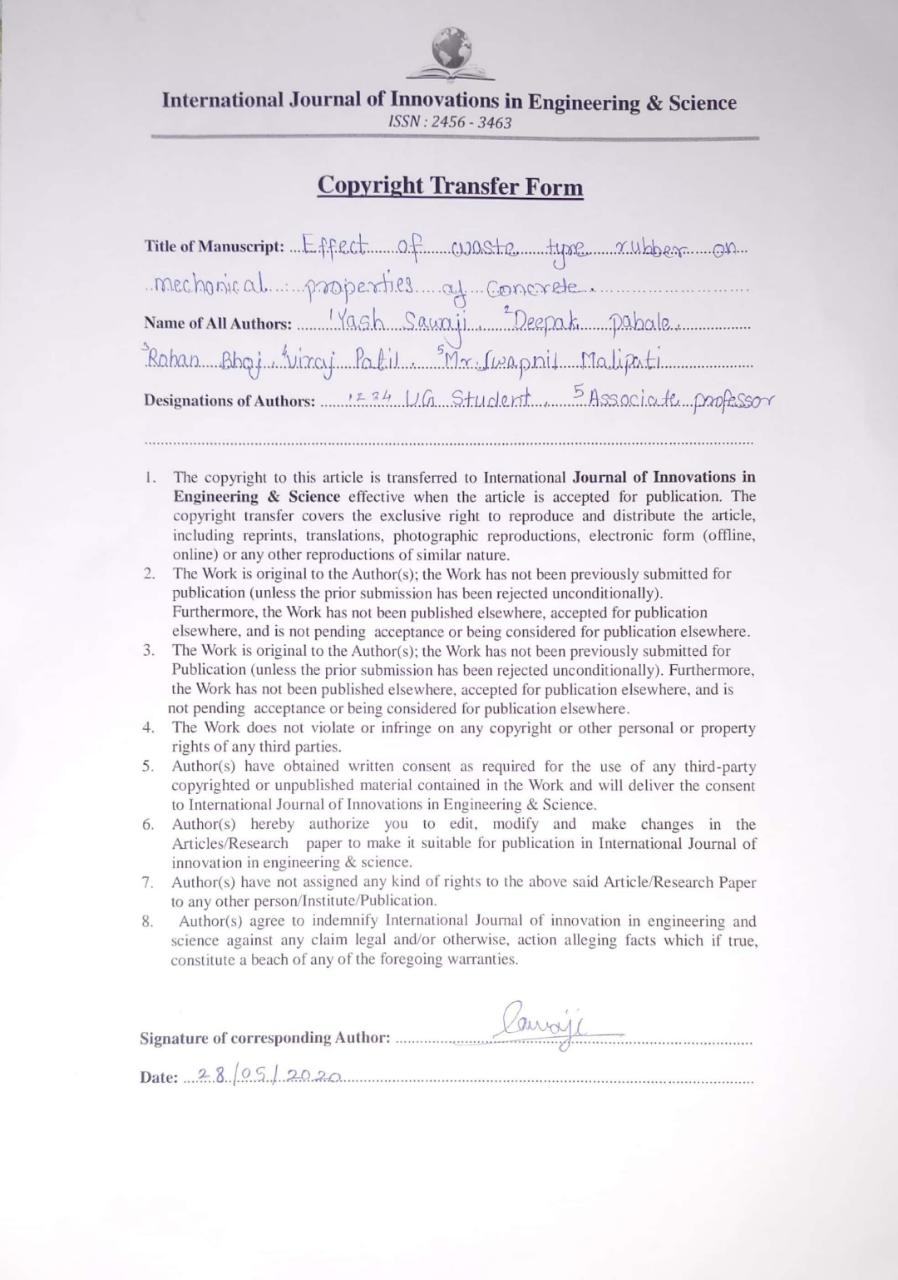 International Journal of Innovations in Engineering & Science
ISSN : 2456 - 3463
Copyright Transfer Form
Title of Manuscript: Effect of waste tyre rubber on
mechonical properties of concrete.
Name of All Authors: 1Yash Sauraji, 2Deepak pabale,
3Rohan Bhoj, 4Viraj Patil, 5Mr. Swapnil Malipati
Designations of Authors: 1234 UG Student, 5 Associate professor
1. The copyright to this article is transferred to International Journal of Innovations in
Engineering & Science effective when the article is accepted for publication. The
copyright transfer covers the exclusive right to reproduce and distribute the article,
including reprints, translations, photographic reproductions, electronic form (offline,
online) or any other reproductions of similar nature.
2. The Work is original to the Author(s); the Work has not been previously submitted for
publication (unless the prior submission has been rejected unconditionally).
Furthermore, the Work has not been published elsewhere, accepted for publication
elsewhere, and is not pending acceptance or being considered for publication elsewhere.
3. The Work is original to the Author(s); the Work has not been previously submitted for
Publication (unless the prior submission has been rejected unconditionally). Furthermore,
the Work has not been published elsewhere, accepted for publication elsewhere, and is
not pending acceptance or being considered for publication elsewhere.
4. The Work does not violate or infringe on any copyright or other personal or property
rights of any third parties.
5. Author(s) have obtained written consent as required for the use of any third-party
copyrighted or unpublished material contained in the Work and will deliver the consent
to International Journal of Innovations in Engineering & Science.
6. Author(s) hereby authorize you to edit, modify and make changes in the
Articles/Research paper to make it suitable for publication in International Journal of
innovation in engineering & science.
7. Author(s) have not assigned any kind of rights to the above said Article/Research Paper
to any other person/Institute/Publication.
8. Author(s) agree to indemnify International Journal of innovation in engineering and
science against any claim legal and/or otherwise, action alleging facts which if true,
constitute a beach of any of the foregoing warranties.
Signature of corresponding Author:
Date: 28/05/2020